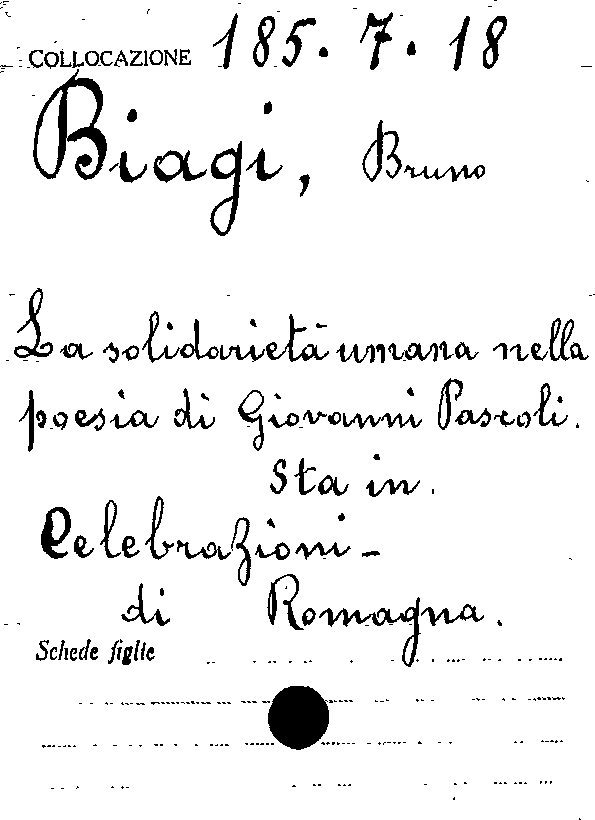 COLLOCAZIONE 185.7.18
Biagi, Bruno
La solidarietà umana nella
poesia di Giovanni Pascoli.
Sta in.
Celebrazioni -
di Romagna.
Schede figlie